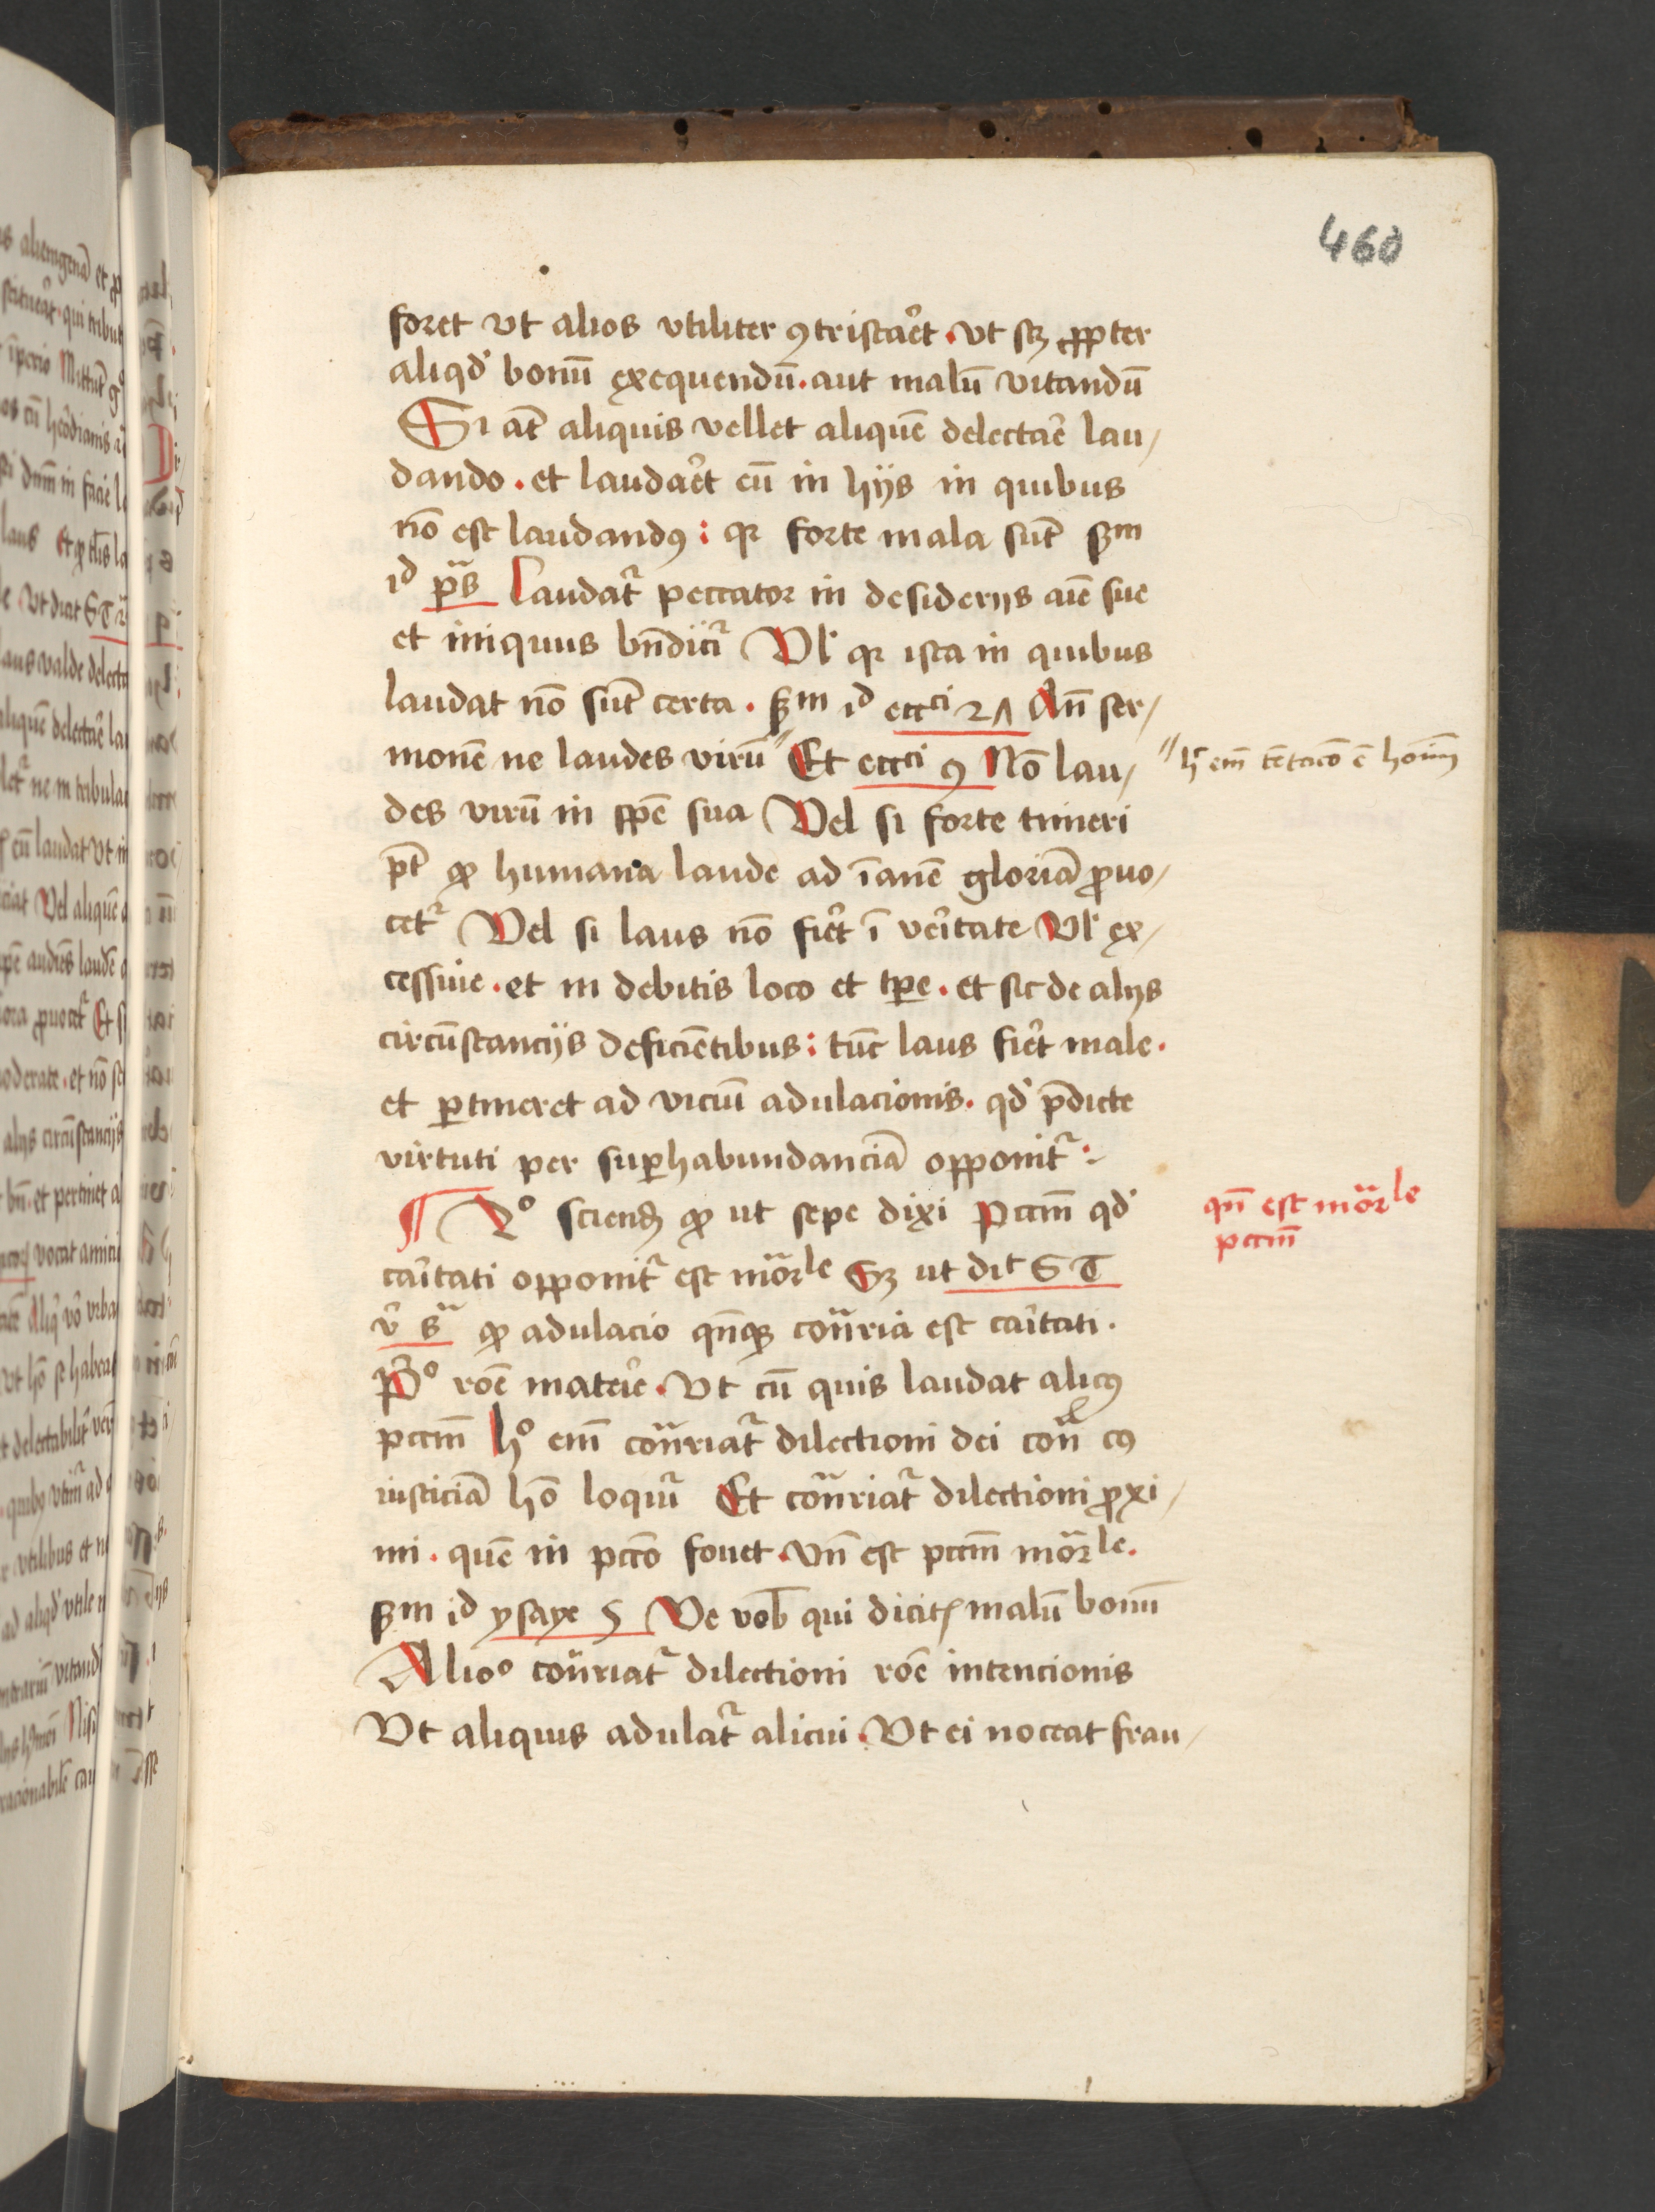 460
foret vt alios vtiliter ꝯtristar̉et . vt sꝫ ꝓpter
aliqd' bonū exequendū . aut malū vitandū
Si aūt aliquis vellet aliquē delectar̉e lau/
dando . et laudar̉et eū in hijs in quibus
nō est laudandꝯ : qꝛ forte mala sūt ẜm
id ps̄ Laudat᷑ peccator in desiderijs aīe sue
et iniquus bn̄dicit᷑ Vl' qꝛ ista in quibus
laudat nō sūt certa . ẜm id ecc̄ci 27 An̄ ser/
monē ne laudes virū " Et ecc̄ci 9 Nō lau/
" h' em̄ tētacō ē hoīm
des virū in spē sua Vel si forte timeri
pt̄ ꝙ humana laude ad īanē gloriā ꝓuo/
cet᷑ Vel si laus nō fier̉t ī ver̉itate Vl' ex/
cessiue . et in debitis loco et tꝑe . et sic de alijs
circūstancijs deficiētibus : tūc laus fier̉t male .
et ꝑtineret ad viciū adulacionis . qd' p̄dicte
virtuti per suꝑhabundanciā opponit᷑ :
¶ 2º sciend ꝙ ut sepe dixi Pccm̄ qd'
qn̄ est mōrle
pccm̄
car̉itati opponit᷑ est mōrle Sꝫ ut dit S T
ꝙ adulacio qn̄qꝫ cōn̄ria est car̉itati .
P'º rōe mater̉ie . Vt cū quis laudat alicꝯ
pccm̄ hº em̄ cōn̄riat᷑ dilectioni dei cōn̄ cꝯ
iusticiā hō loquit᷑ Et cōn̄riat᷑ dilectioni ꝓxi/
mi . quē in pccō fouet . Vn̄ est pccm̄ mōrle .
ẜm id ysaye 5 Ve vob̄ qui dicitꝭ malū bonū
Alioº cōn̄riat᷑ dilectioni rōe intencionis
Vt aliquis adulat᷑ alicui . Vt ei noceat frau/